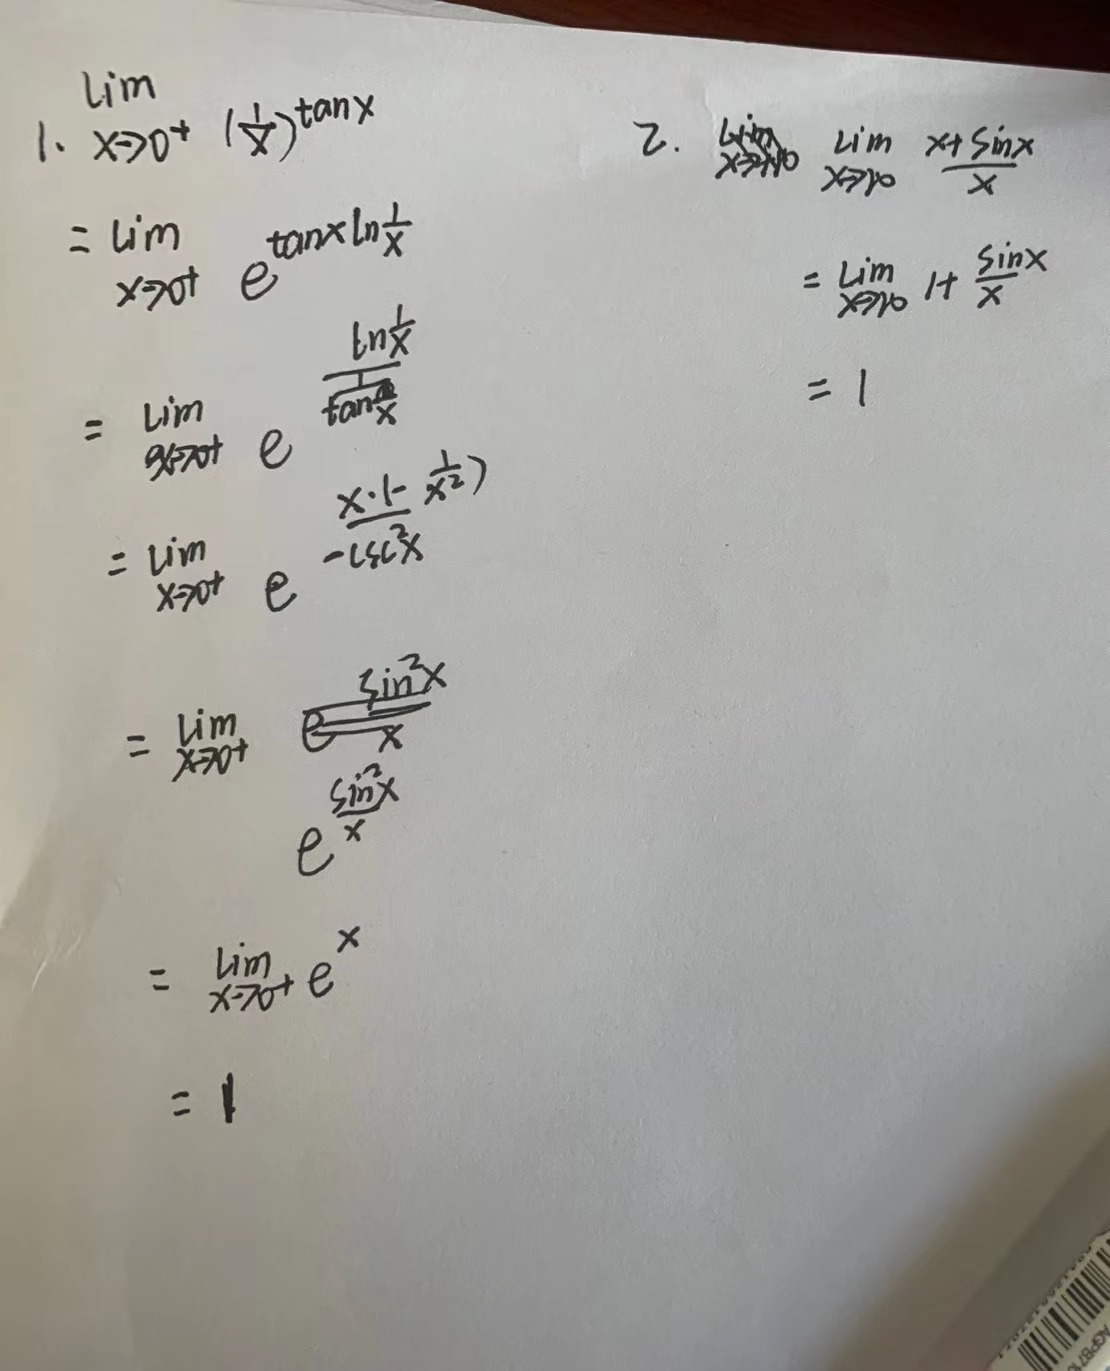 1. lim x→0⁺ (1/x)^tanx
= lim x→0⁺ e^(tanx ln 1/x)
= lim x→0⁺ e^(ln 1/x / (1/tanx))
= lim x→0⁺ e^(x·(-1/x²) / -csc²x)
= lim x→0⁺
e^(sin²x/x)
= lim x→0⁺ e^x
= 1
2. lim x→∞ (x+sinx)/x
= lim x→∞ 1+ sinx/x
= 1